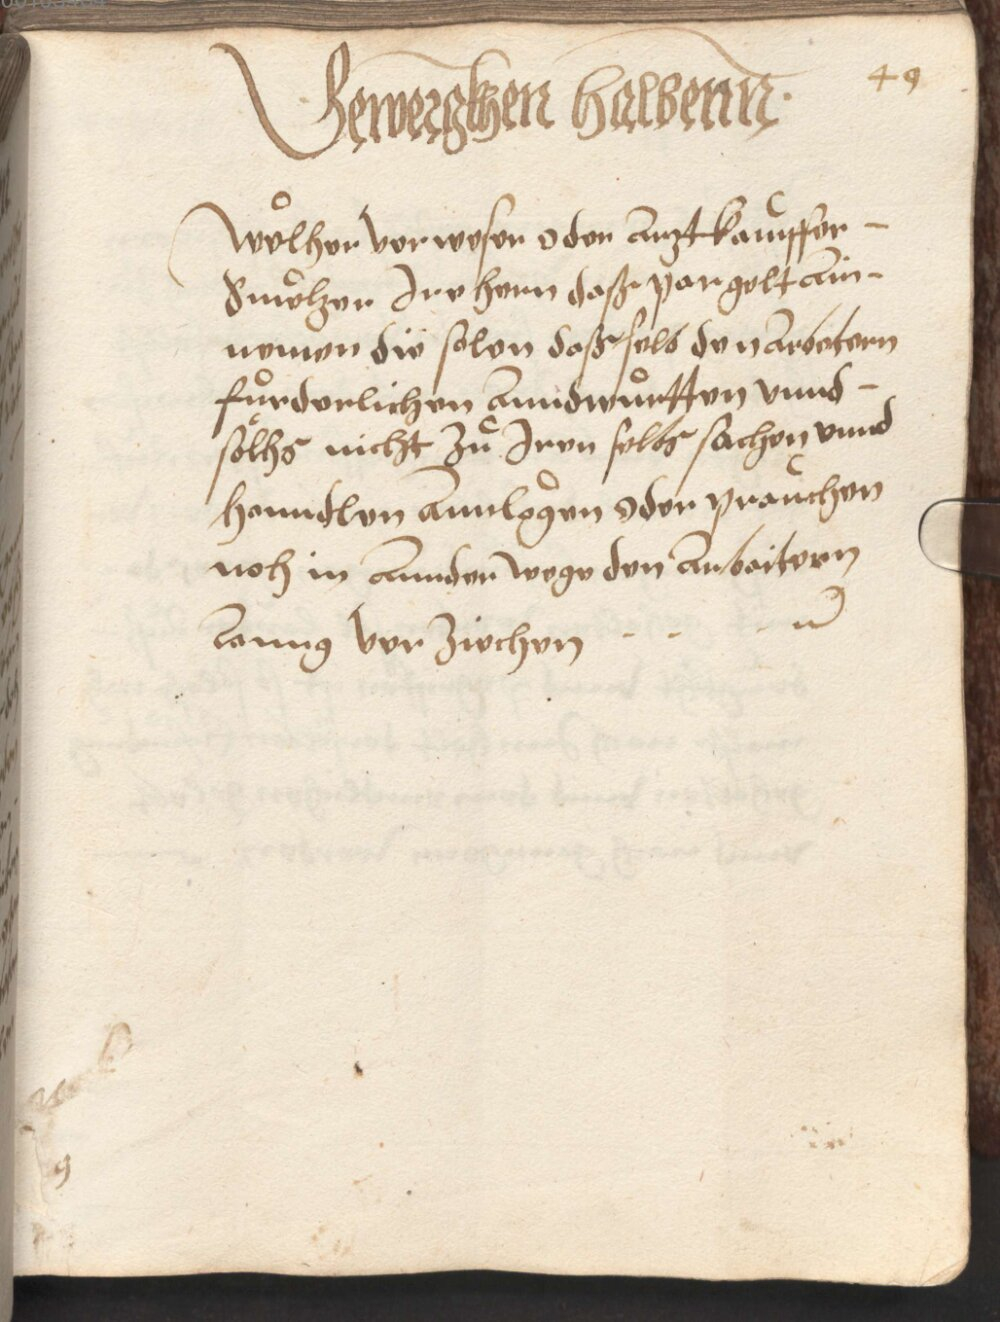 49
Gewergkhen halbenn
Wölher verweser oder Arztkauffer
Smölzer Ire hern daß par gelt ain
nemen die solen daßselb den arbetern
fürderlichen anndwurtten vnnd
sölhs nicht zu Iren selbs sachen vnnd
hanndlen annlegen oder prauchen
noh in annder wege den arbaitern
lanng ver ziechen